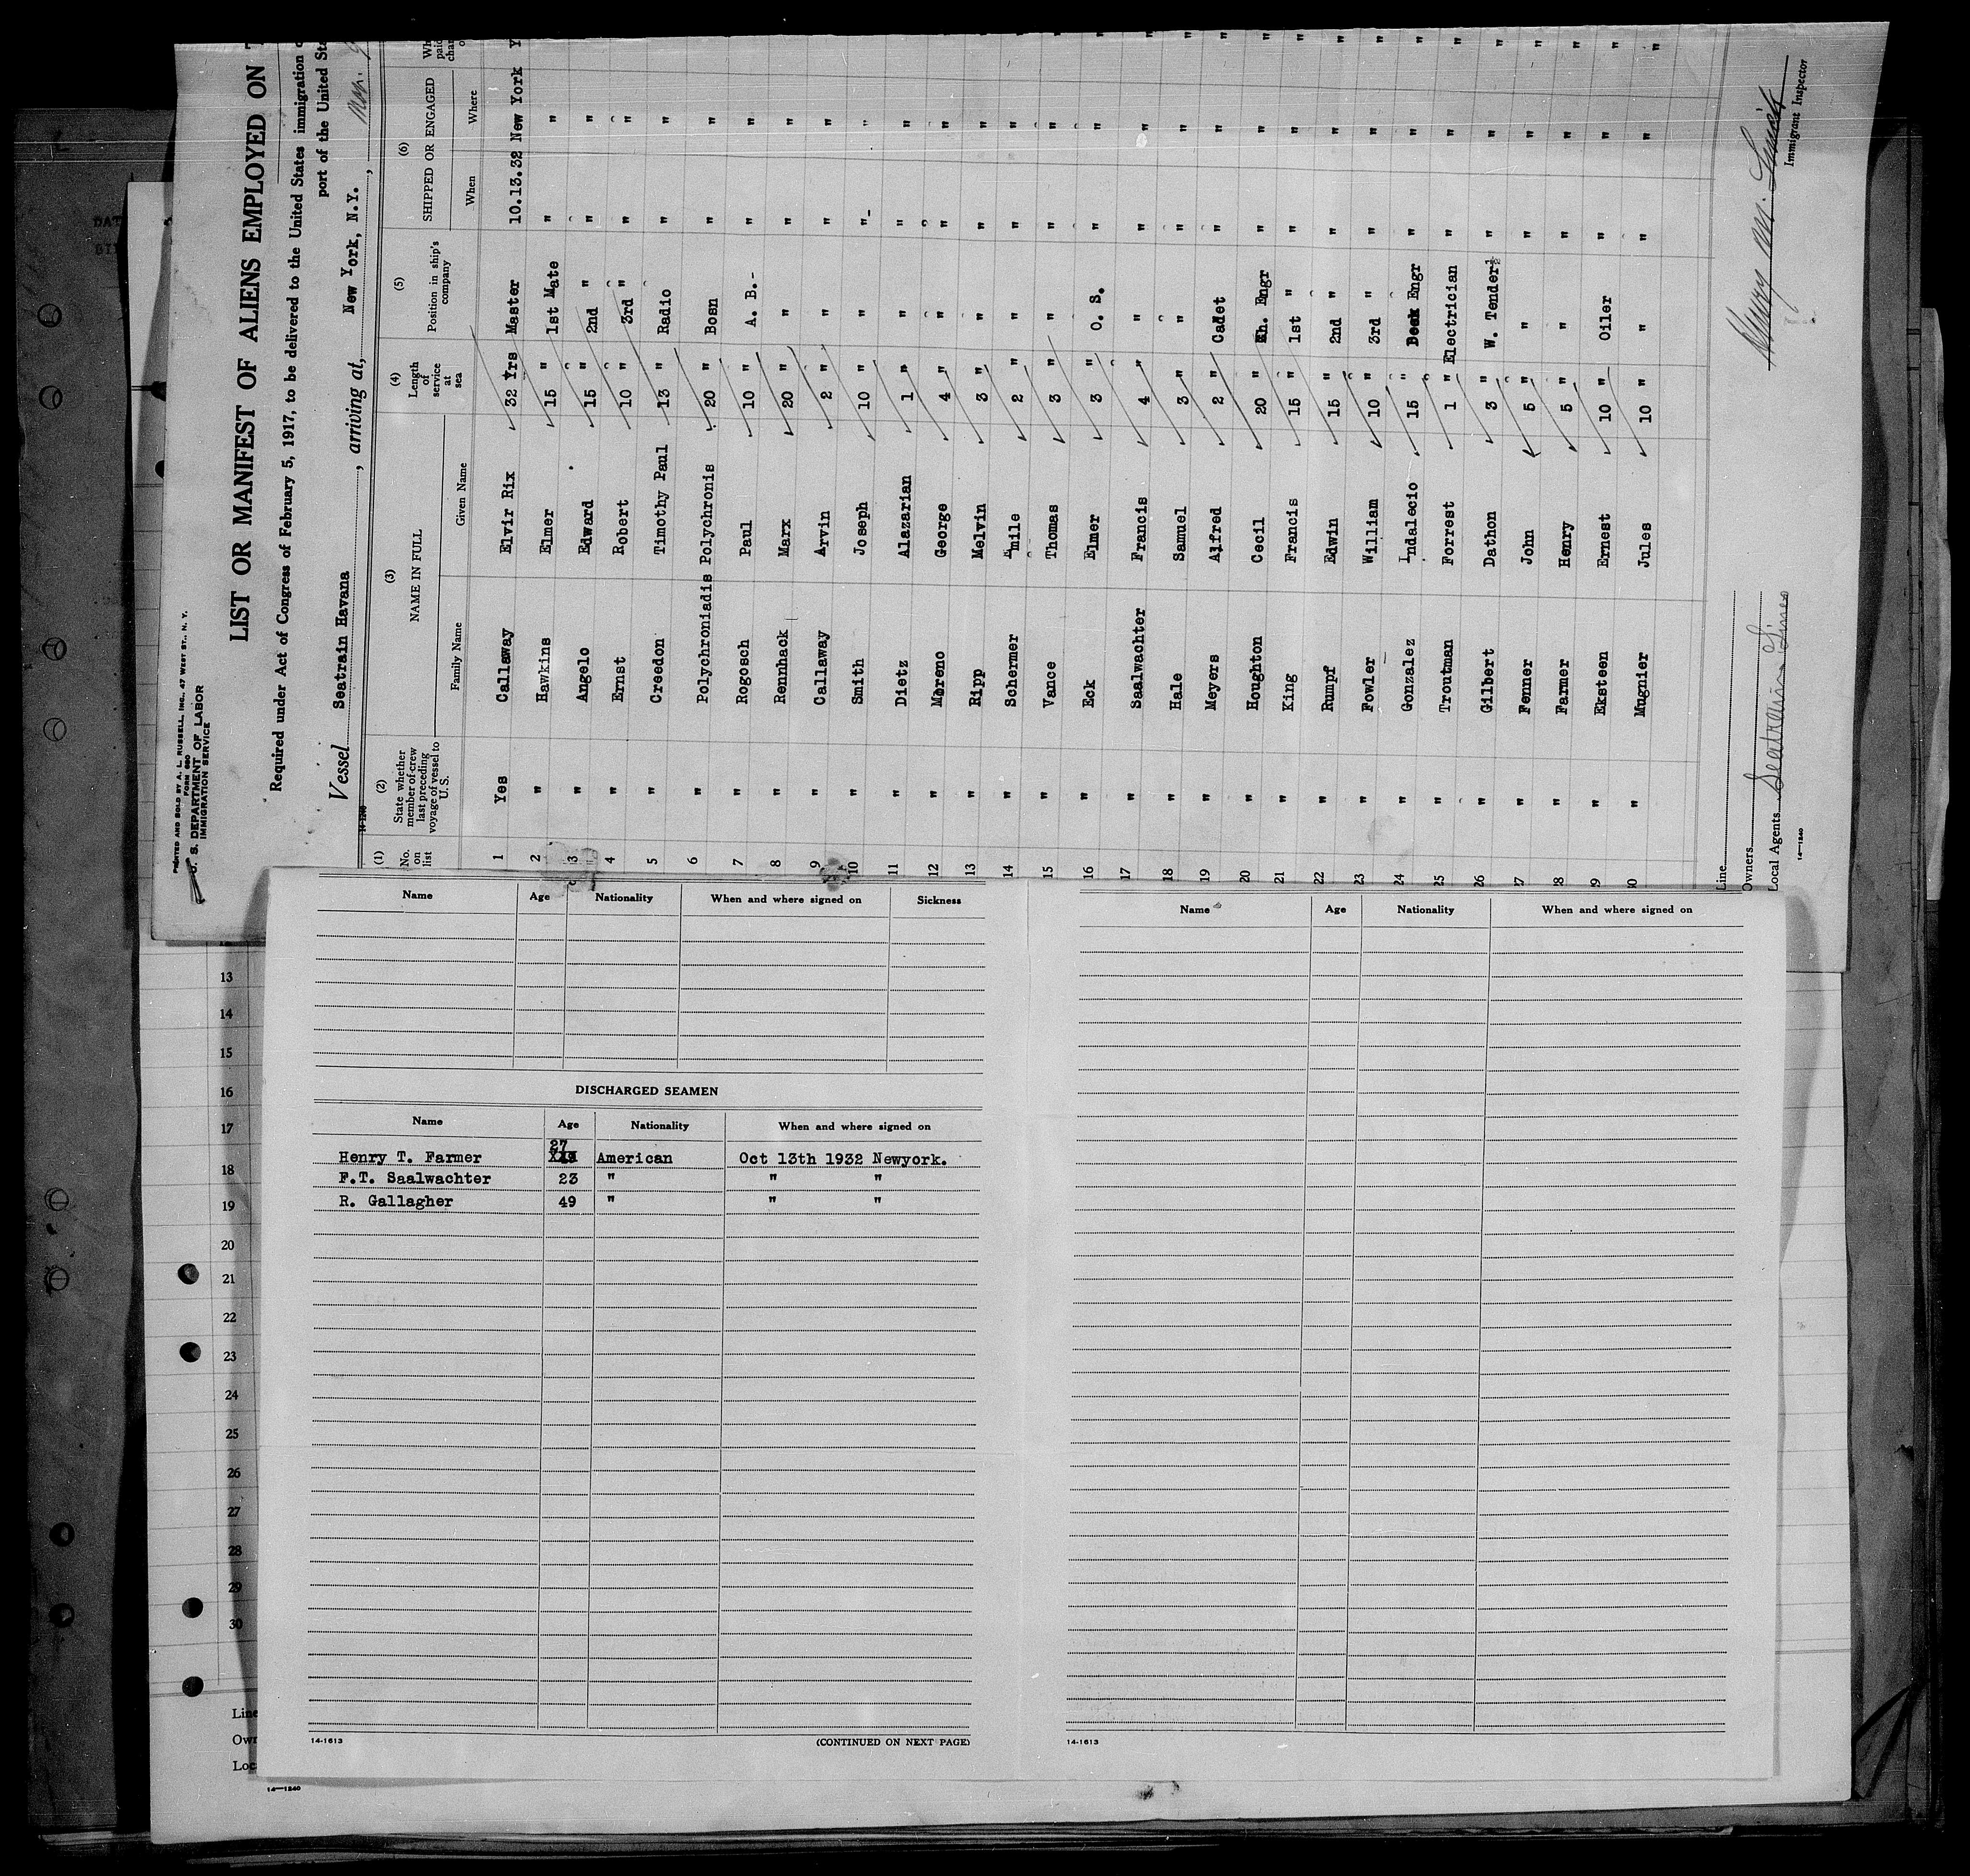 PRINTED AND SOLD BY A. L. RUSSELL, INC., 47 WEST ST., N. Y.
FORM 680
U. S. DEPARTMENT OF LABOR
IMMIGRATION SERVICE
LIST OR MANIFEST OF ALIENS EMPLOYED ON
Required under Act of Congress of February 5, 1917, to be delivered to the United States immigration
port of the United
Vessel Seatrain Havana, arriving at, New York, N.Y.,
14-1240
(1) No. on list (2) State whether member of crew last preceding voyage of vessel to U. S. (3) NAME IN FULL Family Name Given Name (4) Length of service at sea (5) Position in ship's company (6) SHIPPED OR ENGAGED When Where
1 Yes Callaway Elvir Rix 32 Yrs Master 10.13.32 New York
2 " Hawkins Elmer 15 " 1st Mate " "
3 " Angelo Edward 15 " 2nd " " "
4 " Ernst Robert 10 " 3rd " " "
5 " Creedon Timothy Paul 13 " Radio " "
6 " Polychroniadis Polychronis 20 " Bosn " "
7 " Rogosch Paul 10 " A. B.- " "
8 " Rennhack Marx 20 " " " "
9 " Callaway Arvin 2 " " " "
10 " Smith Joseph 10 " " "- "
11 " Dietz Alazarian 1 " " " "
12 " Moreno George 4 " " " "
13 " Ripp Melvin 3 " " " "
14 " Schermer Emile 2 " " " "
15 " Vance Thomas 3 " " " "
16 " Eck Elmer 3 " O. S. " "
17 " Saalwachter Francis 4 " " " "
18 " Hale Samuel 3 " " " "
19 " Meyers Alfred 2 " Cadet " "
20 " Houghton Cecil 20 " Ch. Engr " "
21 " King Francis 15 " 1st " " "
22 " Rumpf Edwin 15 " 2nd " " "
23 " Fowler William 10 " 3rd " " "
24 " Gonzalez Indalecio 15 " Deck Engr " "
25 " Troutman Forrest 1 " Electrician " "
26 " Gilbert Dathon 3 " W. Tender " "
27 " Fenner John 5 " " " "
28 " Farmer Henry 5 " " " "
29 " Eksteen Ernest 10 " Oiler " "
30 " Mugnier Jules 10 " " " "
Line
Owners
Local Agents Seatrain Lines
Immigrant Inspector
14-1240
Name Age Nationality When and where signed on Sickness
DISCHARGED SEAMEN
Name Age Nationality When and where signed on
27
Henry T. Farmer American Oct 13th 1932 Newyork.
F.T. Saalwachter 23 " " "
R. Gallagher 49 " " "
14-1613 (CONTINUED ON NEXT PAGE)
Name Age Nationality When and where signed on
14-1613
13
14
15
16
17
18
19
20
21
22
23
24
25
26
27
28
29
30
Line
Own
Loc
14-1240